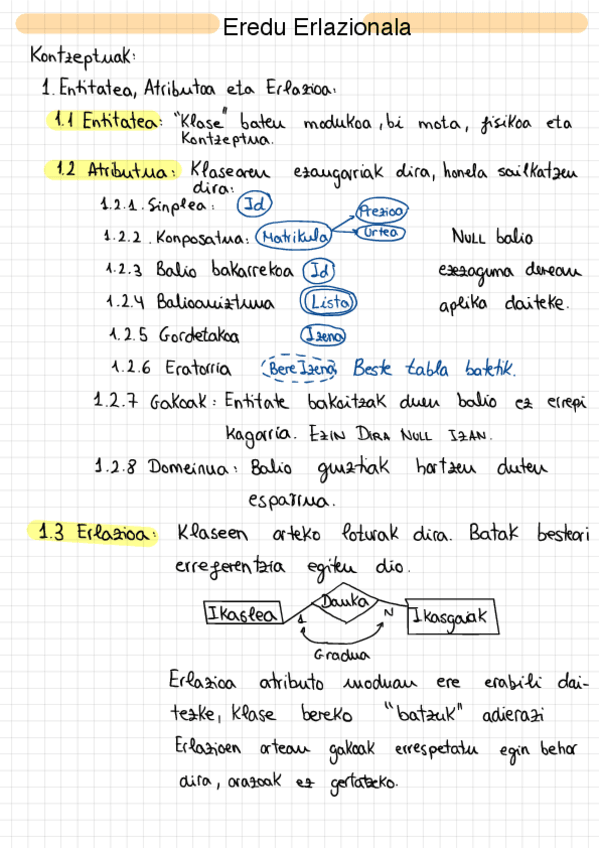 Eredu Erlazionala
Kontzeptuak:
1. Entitatea, Atributoa eta Erlazioa:
1.1 Entitatea: "Klase" baten modukoa, bi mota, fisikoa eta
Kontzeptua.
1.2 Atributua: Klasearen ezaugarriak dira, honela sailkatzen
dira:
1.2.1. Sinplea: Id
Prezioa
1.2.2. Konposatua: Matrikula Urtea NULL balio
1.2.3 Balio bakarrekoa Id ezezaguna denean
1.2.4 Balioaniztuna Lista aplika daiteke.
1.2.5 Gordetakoa Izena
1.2.6 Eratorria Bere Izena Beste tabla batetik.
1.2.7 Gakoak: Entitate bakoitzak duen balio ez errepi
kagarria. EZIN DIRA NULL IZAN.
1.2.8 Domeinua: Balio guztiak hartzen duten
esparrua.
1.3 Erlazioa: Klaseen arteko loturak dira. Batak besteari
erreferentzia egiten dio.
Ikaslea 1 Dauka N Ikasgaiak
Gradua
Erlazioa atributo moduan ere erabili dai-
tezke, klase bereko "batzuk" adierazi
Erlazioen artean gakoak errespetatu egin behar
dira, arazoak ez gertatzeko.